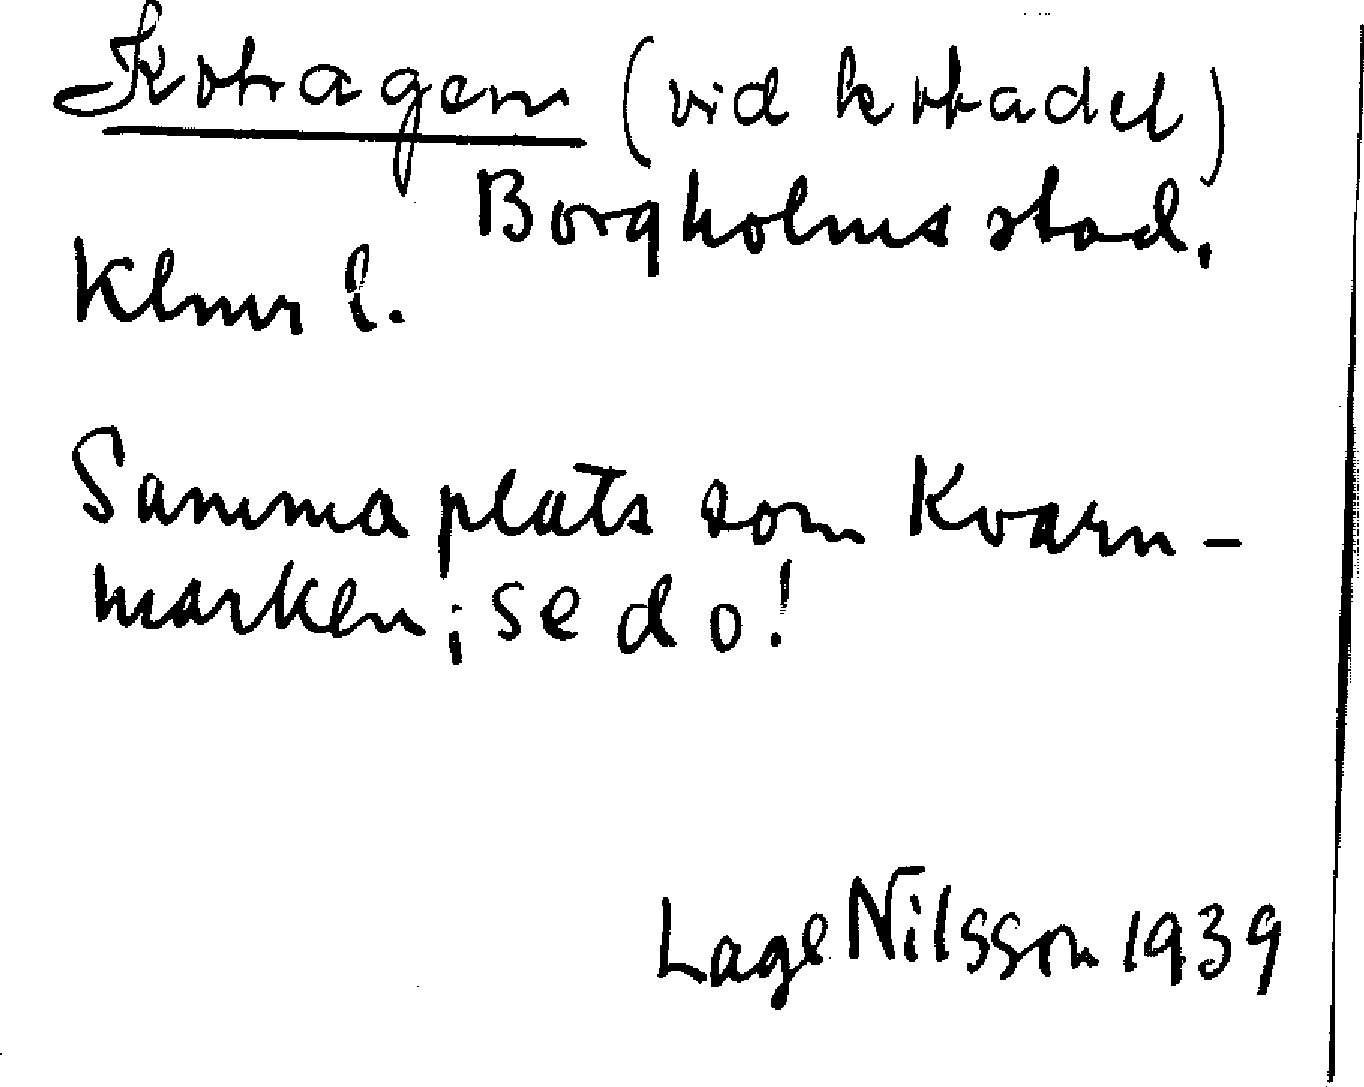 Kohagen (vid
Borgholms stad.
Klmr l.
Samma plats som Kvarn-
marken; se do!
Lage Nilsson 1939